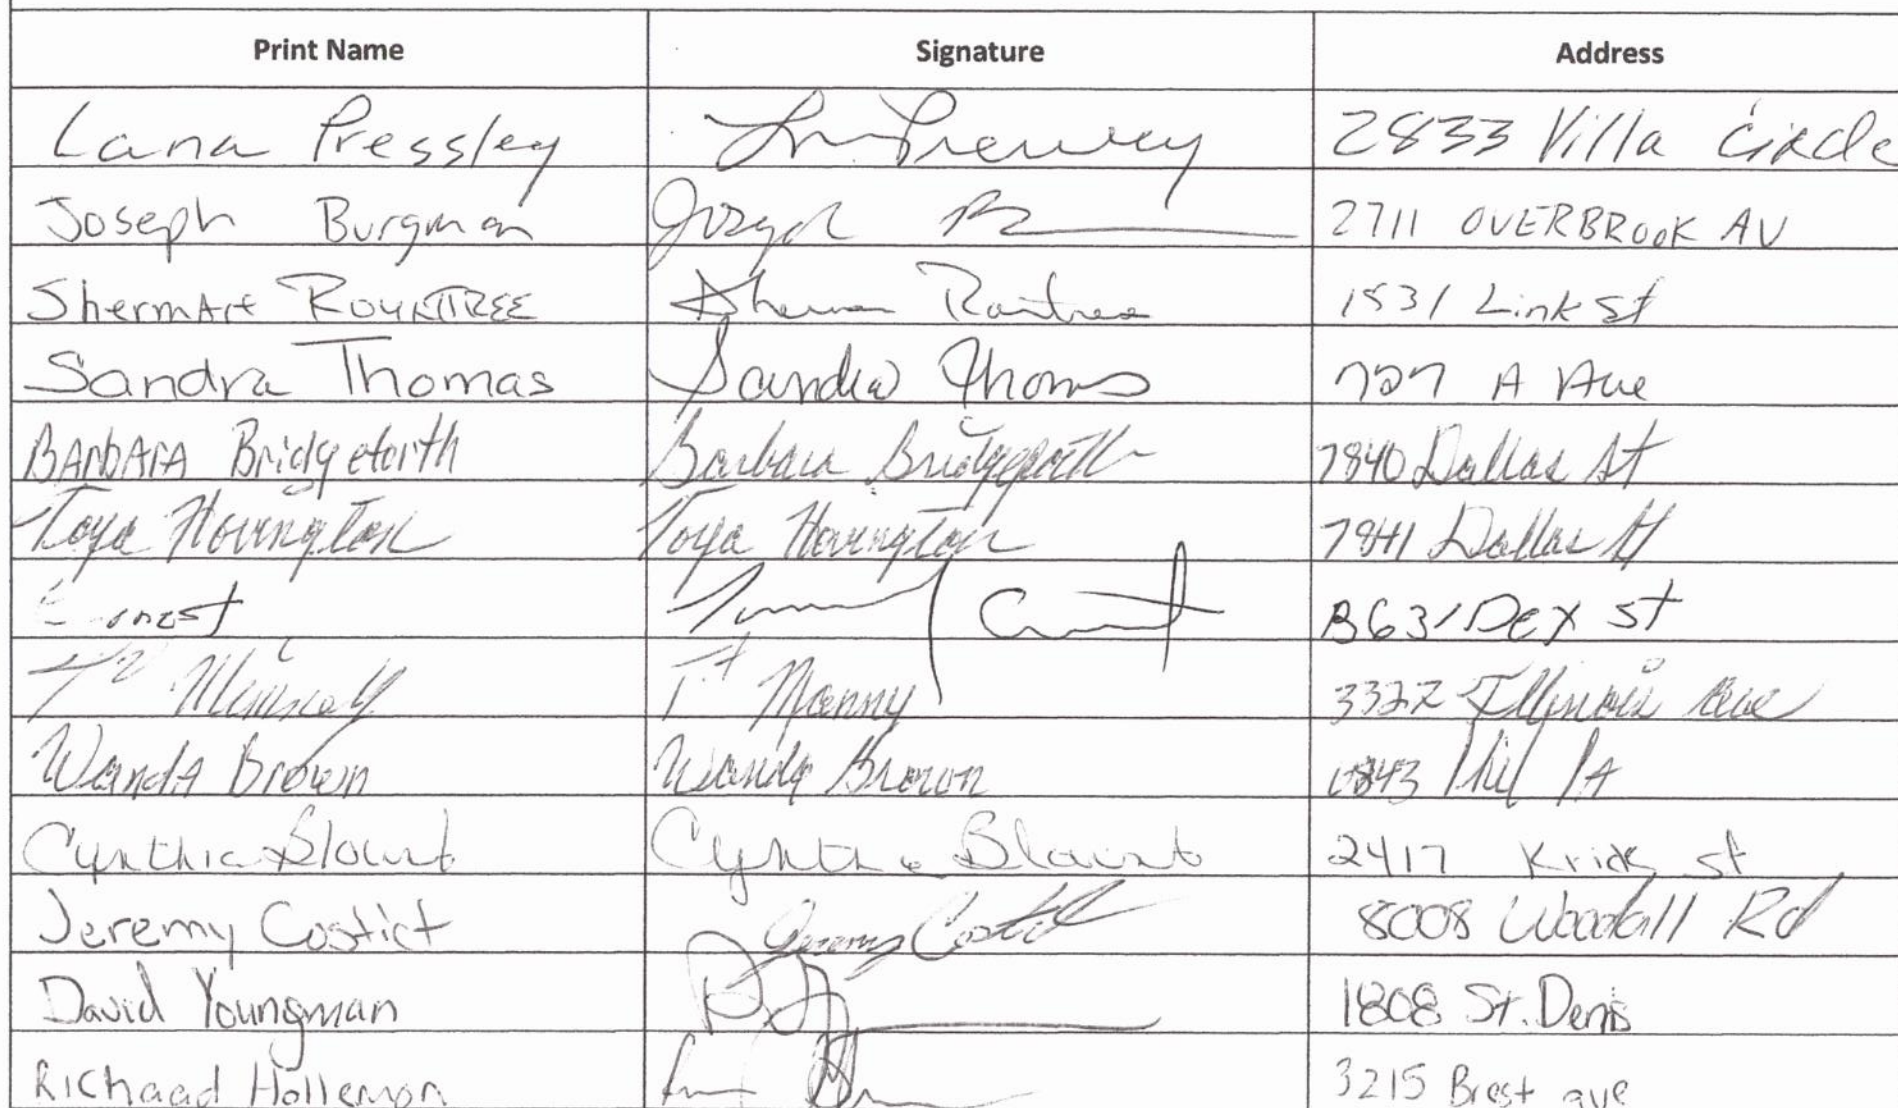 Print Name Signature Address
Lana Pressley 2833 Villa Circle
Joseph Burgman Joseph 2711 OVERBROOK AV
ROUNTREE 1531 Link St
Sandra Thomas Sandra Thomas 727 A Ave
BARBARA Bridgeforth Barbara Bridgeforth 7840 Dallas St
Toya Hovington Toya Hovington 7841 Dallas St
st
Manny 3322 Illinois Ave
WandA Brown Wanda Brown
Cynthia Blount Cynthia Blount 2417 Krick st
Jeremy Costict Jeremy 8008 Woodall Rd
David Youngman 1808 St. Denis
Richaad Holleman 3215 Brest ave